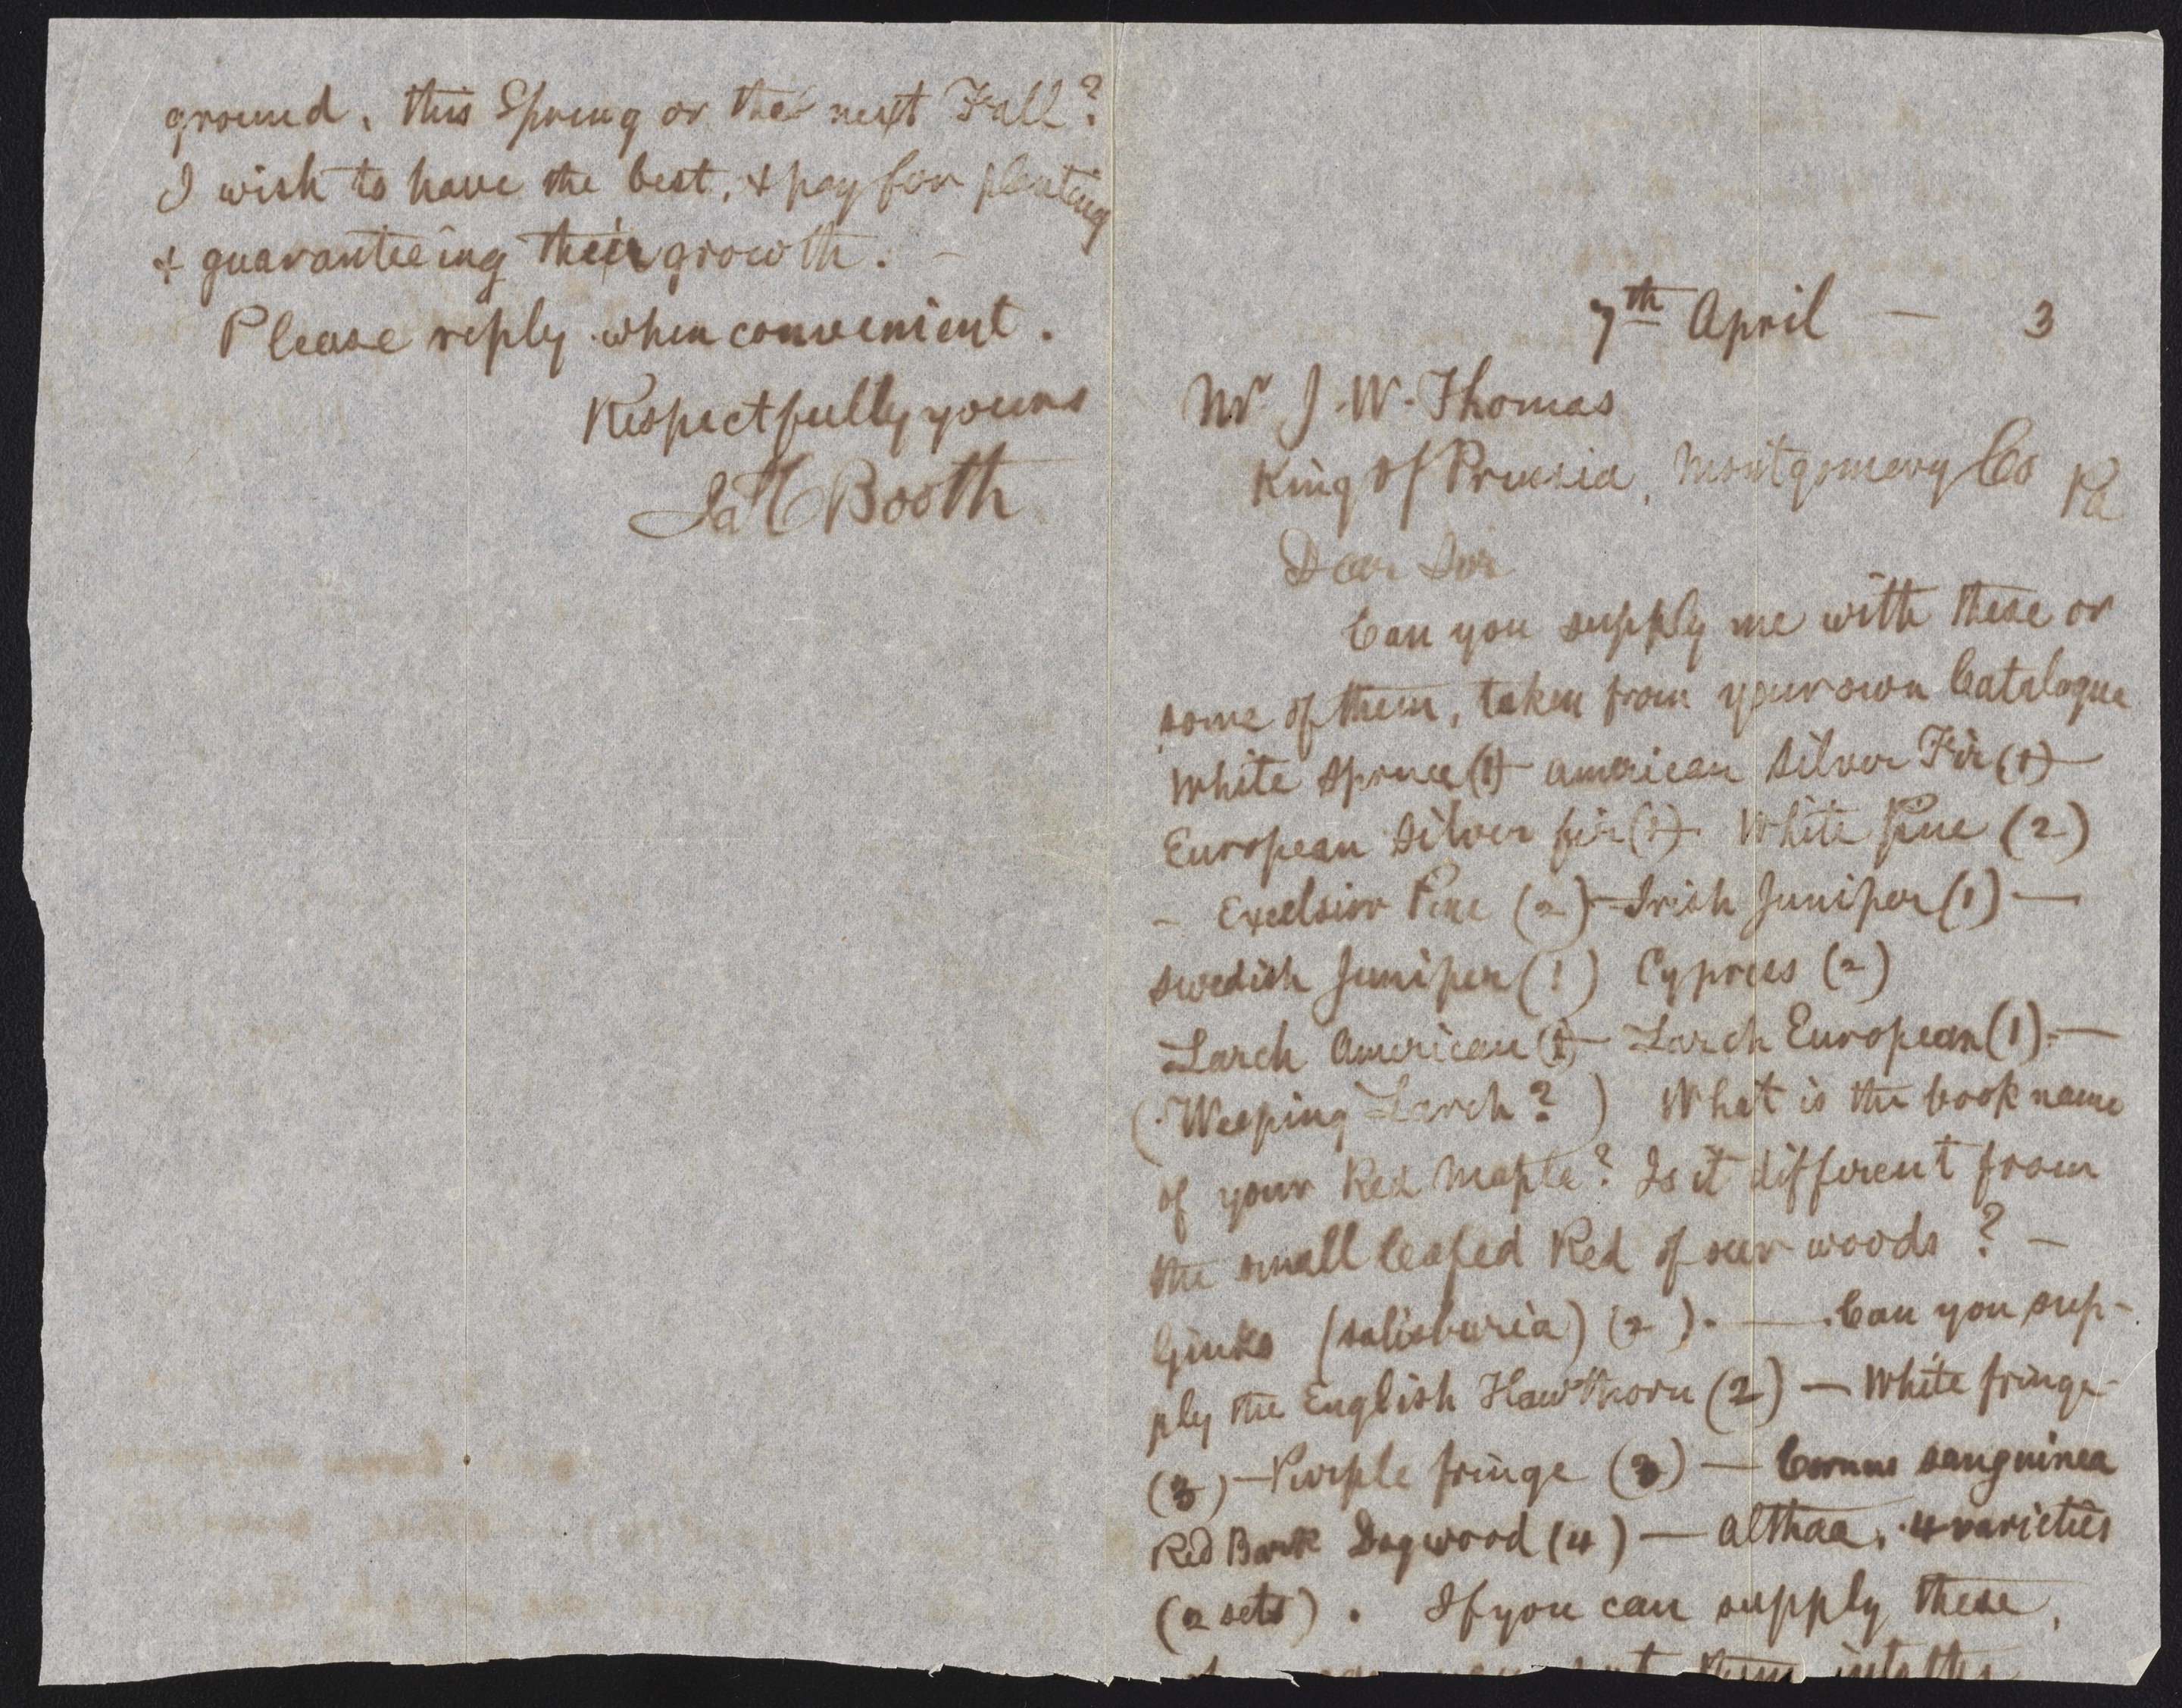 7th April — 3
Mr J. W. Thomas
King of Prussia, Montgomery Co Pa
Dear Sir
Can you supply me with these or
some of them, taken from your own Catalogue
White Spruce (1) — American Silver Fir (1) —
European Silver fir (1) — White Pine (2)
— Excelsior Pine (2) — Irish Juniper (1) —
Swedish Juniper (1) Cypress (2)
Larch American (1) — Larch European (1). —
(Weeping Larch?) What is the book name
of your Red Maple? Is it different from
the small leafed Red of our woods? —
Ginko (Salisburia) (2). — Can you sup-
ply the English Hawthorn (2) — White fringe
(3) — Purple fringe (3) — Cornus sanguinea
Red Bark Dogwood (4) — Althaa. 4 varieties
(2 sets). If you can supply these,
them into the
ground, this Spring or the next Fall?
I wish to have the best, & pay for planting
& guaranteeing their growth. —
Please reply when convenient.
Respectfully yours
Ja C Booth